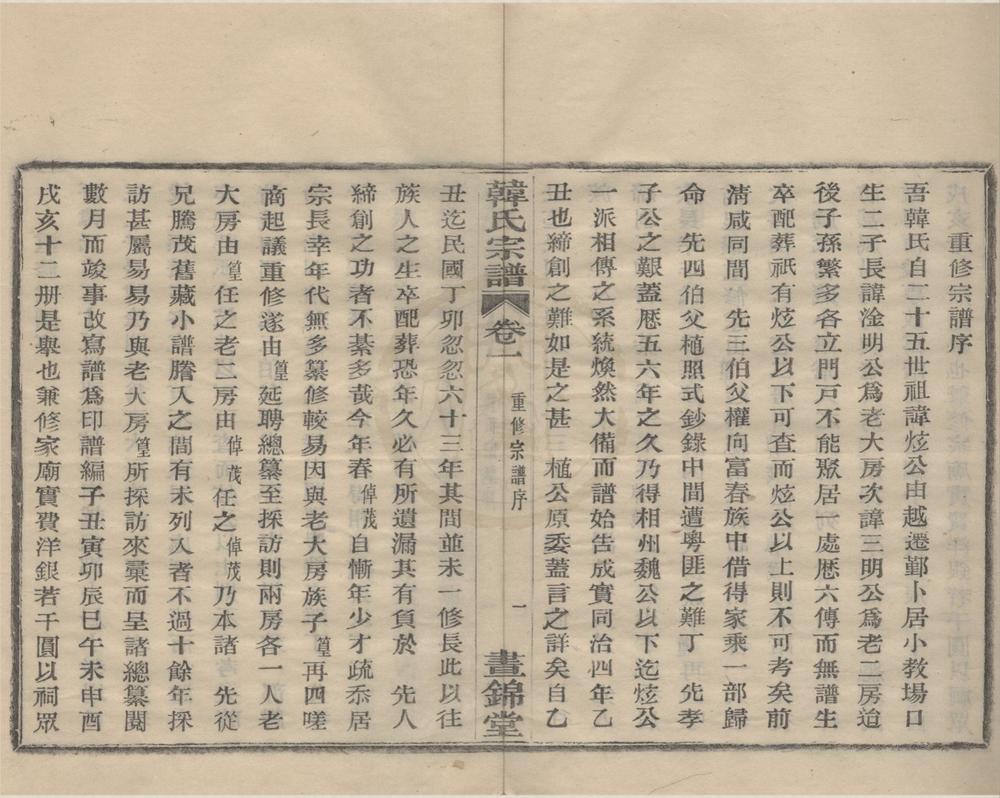 重修宗譜序
吾韓氏自二十五世祖諱炫公由越遷鄞卜居小教場口
生二子長諱淦明公爲老大房次諱三明公爲老二房迨
後子孫繁多各立門戸不能聚居一處歴六傳而無譜生
卒配葬祇有炫公以下可查而炫公以上則不可考矣前
淸咸同間　先三伯父權向富春族中借得家乘一部歸
命　先四伯父植照式鈔錄中間遭粵匪之難丁　先孝
子公之艱蓋歴五六年之久乃得相州魏公以下迄炫公
一派相傳之系統煥然大備而譜始告成實同治四年乙
丑也締創之難如是之甚三植公原委蓋言之詳矣自乙
韓氏宗譜　卷一　重修宗譜序　一　晝錦堂
丑迄民國丁卯忽忽六十三年其間並未一修長此以往
族人之生卒配葬恐年久必有所遺漏其有負於　先人
締創之功者不綦多哉今年春倬茂自慚年少才疏忝居
宗長幸年代無多纂修較易因與老大房族子篁再四嗟
商起議重修遂由篁延聘總纂至採訪則兩房各一人老
大房由篁任之老二房由倬茂任之倬茂乃本諸　先從
兄騰茂舊藏小譜謄入之間有未列入者不過十餘年採
訪甚屬易易乃與老大房篁所採訪來彚而呈諸總纂閱
數月而竣事改寫譜爲印譜編子丑寅卯辰巳午未申酉
戌亥十二册是舉也兼修家廟實費洋銀若干圓以祠眾